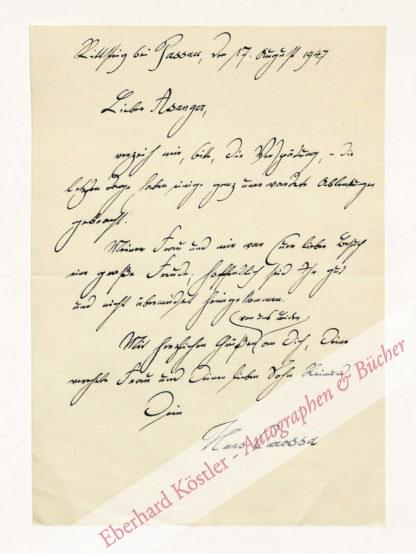 Rittsteig bei Passau, den 17. August 1947
Lieber Asanger,
verzeih mir, bitte, die Verspätung, – die
letzten Tage haben einige ganz unerwartete Ablenkungen
gebracht.
Meiner Frau und mir war Euer lieber Besuch
eine große Freude; hoffentlich seid Ihr gut
und nicht übermüdet heimgekommen.
von uns beiden
Mit herzlichen Grüßen an Dich, Deine
verehrte Frau und Deinen lieben Sohn
Dein
Hans Carossa
Eberhard Köstler - Autographen & Bücher